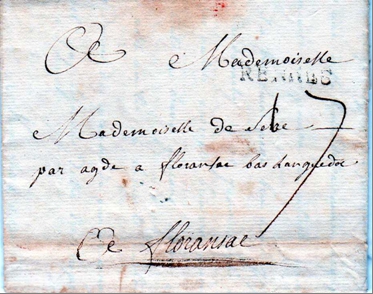 A Mademoiselle
RENNES
17
Mademoiselle de Seve
par agde a floransac bas Languedoc
A floransac